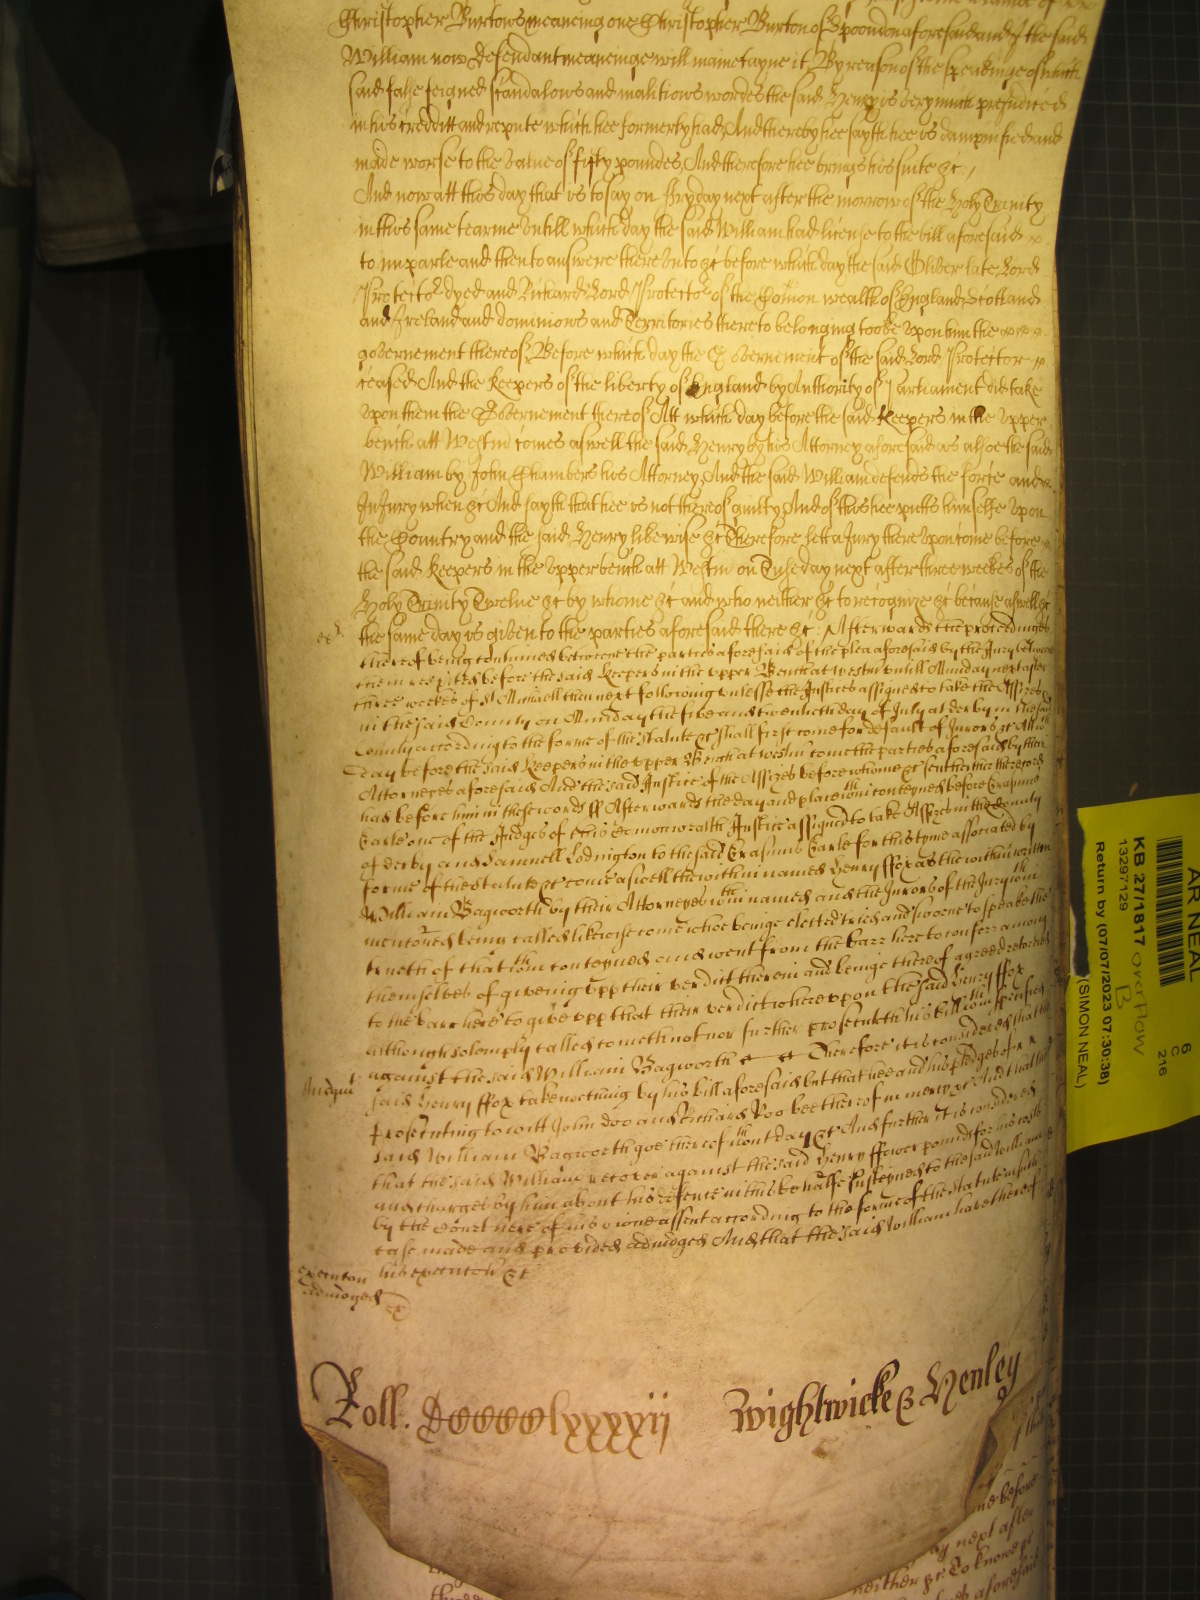 Christopher Burtows meaneing one Christopher Burton of Spoondon aforesaid and I the said
William now defendant meaneinge will mainetayne it By reason of the speakinge of which
said false feigned scandalows and malitiows wordes the said Henry is very much prejudiced
in his creditt and repute which hee formerly had And thereby hee sayth hee is dampnified and
made worse to the value of fifty poundes, And therefore hee brings his suite &c.
And now att this day that is to say on Fryday next after the morrow of the Holy Trinity
in this same tearme untill which day the said William had license to the bill aforesaid
to imparle and then to answere thereunto &c before which day the said Oliver late Lord
Protector dyed and Richard Lord Protector of the Comon wealth of England Scotland
and Ireland and dominions and Territories thereto belonging tooke upon him the
governement thereof, Before which day the Governement of the said Lord Protector
ceased And the Keepers of the liberty of England by Authority of Parliament did take
upon them the Governement thereof Att which day before the said Keepers in the upper
bench att Westm comes aswell the said Henry by his Attorney aforesaid as alsoe the said
William by John Chambers his Attorney, And the said William defends the force and
Injury when &c And sayth that hee is not thereof guilty And of this hee putts himselfe upon
the Country and the said Henry likewise &c Therefore lett a Jury thereupon come before
the said Keepers in the upper bench att Westm on Tuseday next after three weekes of the
Holy Trinity Twelve &c by whome &c and who neither &c to recognize &c because aswell &c
the same day is given to the parties aforesaid there &c: Afterwards the proceedinges
thereof being continued betweene the parties aforesaid of the plea aforesaid by the Jury betweene
them respited before the said Keepers in the upper Bench at Westm untill Munday next after
three weekes of St Michaell then next following unlesse the Justices assigned to take the Assizes
in the said County on Munday the five and twentieth day of July at derby in the said
County according to the forme of the statute &c shall first come for default of Jurors &c Att wch
day before the said Keepers in the upper Bench at westm come the parties aforesaid by their
Attorneies aforesaid And the said Justice of the Assizes before whome &c sent hither the record
had before him in these words ss Afterwards the day and place wthin conteyned before Erasmus
Earle one of the Judges of this Comonwealth Justice assigned to take Assizes in the County
of derby and Samuell Lodington to the said Erasmus Earle for this tyme associated by
forme of the statute &c come aswell the within named Henry ffox as the within written
William Bagworth by their Attorneyes wthin named and the Jurors of the Jury wthin
mentoned being called likewise come who beinge elected tried and sworne to speake the
trueth of that wthin conteyned and went from the barr here to confer among
themselves of giveing upp their verdict therein and beinge thereof agreed returned
to the barr here to give upp that their verdict whereupon the said Henry ffox
although solemply called cometh not nor further prosecuteth his bill wthin specified
against the said William Bagworth Therefore it is considered that the
Judgmt
said Henry ffox take nothing by his bill aforesaid but that hee and his pledges of
prosecuting to witt John doo and Richard Roo bee thereof in mercy &c And that the
said William Bagworth goe thereof wthout day &c And further it is considered
that the said William recover against the said Henry ffower pounds for his costs
and charges by him about his defence in this behalfe susteyned to the said William
by the Court here of his owne assent according to the forme of the statute in such
case made and provided adiudged And that the said William have thereof
his executon &c
executon
adiudged
Roll.
Wightwicke & Henley
ne before
ay next after
neither &c To knowe
aforesaid
AR NEAL
6
C
216
KB 27/1817 overflow
B
13297129
Return by (07/07/2023 07:30:38)
(SIMON NEAL)